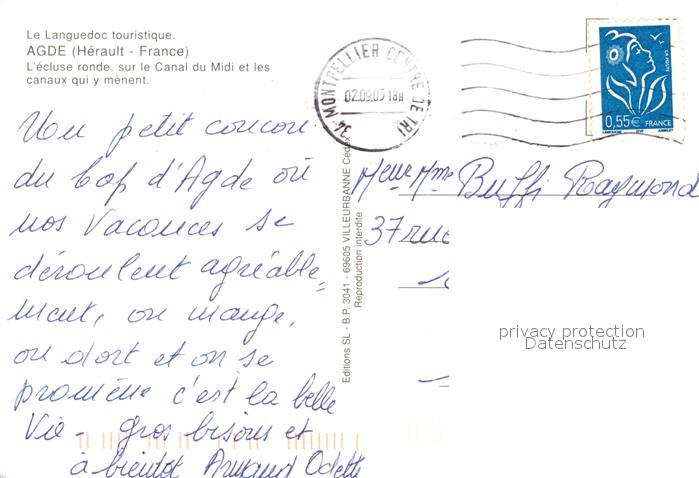 Le Languedoc touristique.
AGDE (Hérault - France)
L'écluse ronde, sur le Canal du Midi et les
canaux qui y mènent.
34 MONTPELLIER CENTRE DE TRI
02.09.05 18H
LA POSTE
0,55€ FRANCE
Un petit coucou
du Cap d'Agde où
nos Vacances se
déroulent agréable=
ment, on mange,
on dort et on se
promène c'est la belle
Vie - gros bisous et
à bientôt Armand Odette
Editions SL - B.P. 3041 - 69605 VILLEURBANNE Cedex
Reproduction interdite
Meur Mme Buffi Raymond
37 rue
privacy protection
Datenschutz